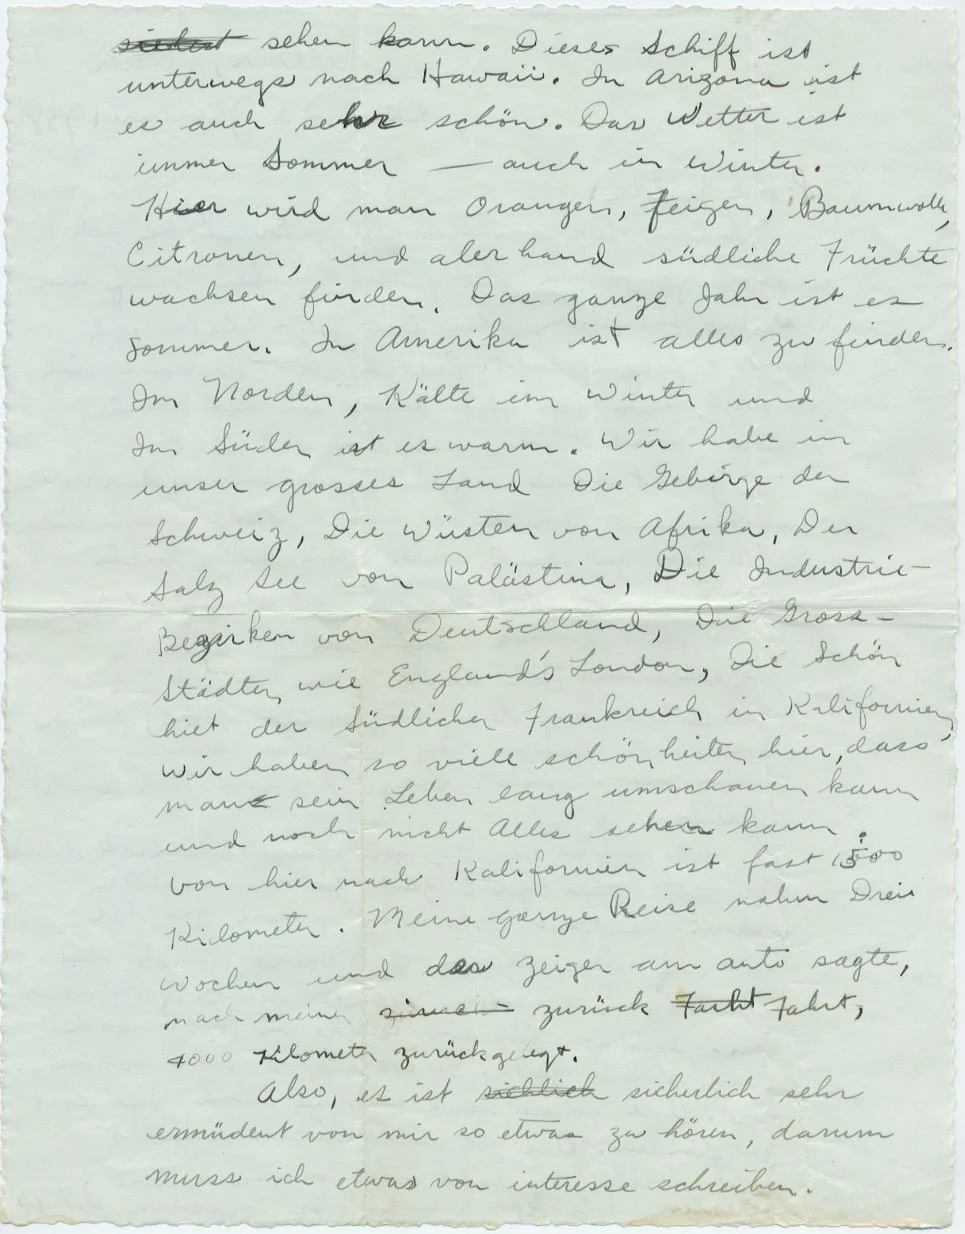 sehen kann. Dieses Schiff ist
unterwegs nach Hawaii. In Arizona ist
es auch sehr schön. Das Wetter ist
immer Sommer — auch in Winter.
Hier wird man Orangen, Feigen, Baumwolle,
Citronen, und alerhand südliche Früchte
wachsen finden. Das ganze Jahr ist es
Sommer. In Amerika ist alles zu finden.
Im Norden, Kälte im Winter und
Im Süden ist es warm. Wir habe in
unser grosses Land Die Gebirge der
Schweiz, Die Wüsten von Afrika, Der
Salz See von Palästina, Die Industrie-
Bezirken von Deutschland, Die Gross-
Städten wie England's London, Die Schön
hiet der Südlichen Frankreich in Kalifornien,
wir haben so viele schönheiten hier, dass
man sein Leben lang umschauen kann
und noch nicht Alles sehen kann.
Von hier nach Kalifornien ist fast 1500
Kilometer. Meine ganze Reise nahm Drei
wochen und das zeiger am auto sagte,
nach meine zurück Fahrt,
4000 Kilometer zurückgelegt.
Also, es ist sicherlich sehr
ermüdent von mir so etwas zu hören, darum
muss ich etwas von interesse schreiben.